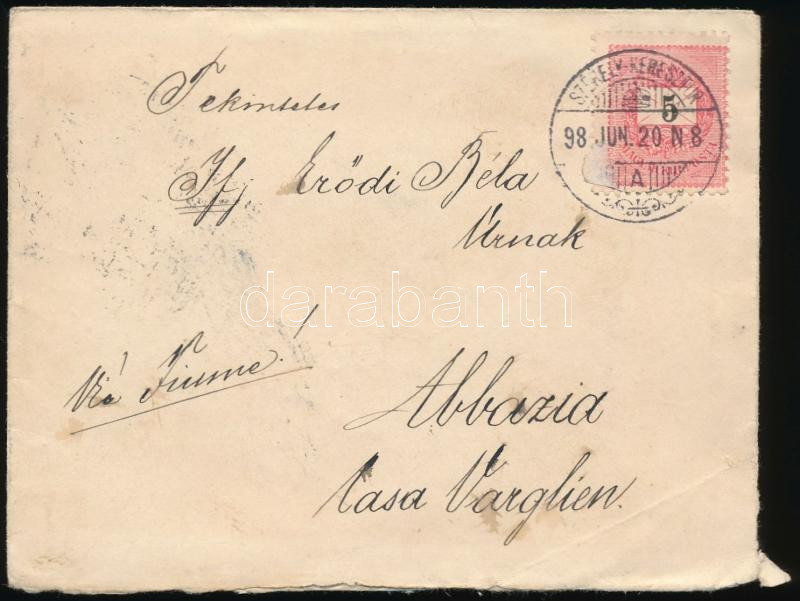 Tekintetes
Ifj Erődi Béla
Úrnak
Viá Fiume!
Abbazia
Casa Varglien.
SZÉKELY-KERESZTÚR
5
98 JUN. 20 N 8
A
darabanth